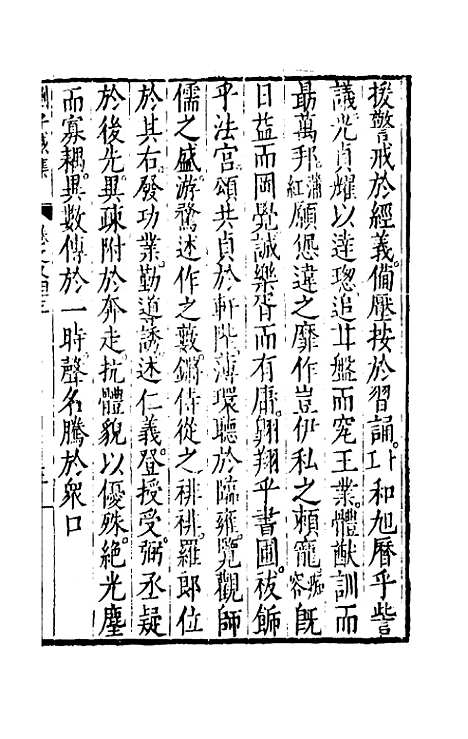 援警戒於經義備歷按於習誦和旭曆乎訾
議光貞耀以達聰追盤而究王業體猷訓而
最萬邦滿紅願愆違之靡作豈伊私之賴寵痴容旣
日益而罔覺誠樂胥而有庸翱翔乎書圃祓飾
乎法宫頌共貞於軒陛薄環聽於臨雍覽觀師
儒之盛游騖述作之藪鏘侍從之排排羅郎位
於其右發功業勤導誘述仁義登授受弼丞疑
於後先異疎附於奔走抗體貌以優殊絶光塵
而寡耦異數傳於一時聲名騰於衆口